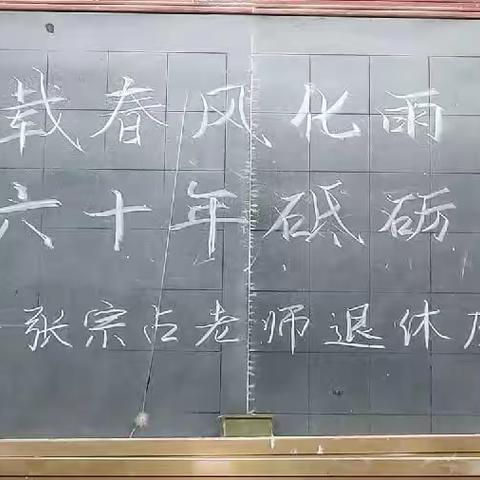 载春风化雨
六十年砥砺
张宗占老师退休